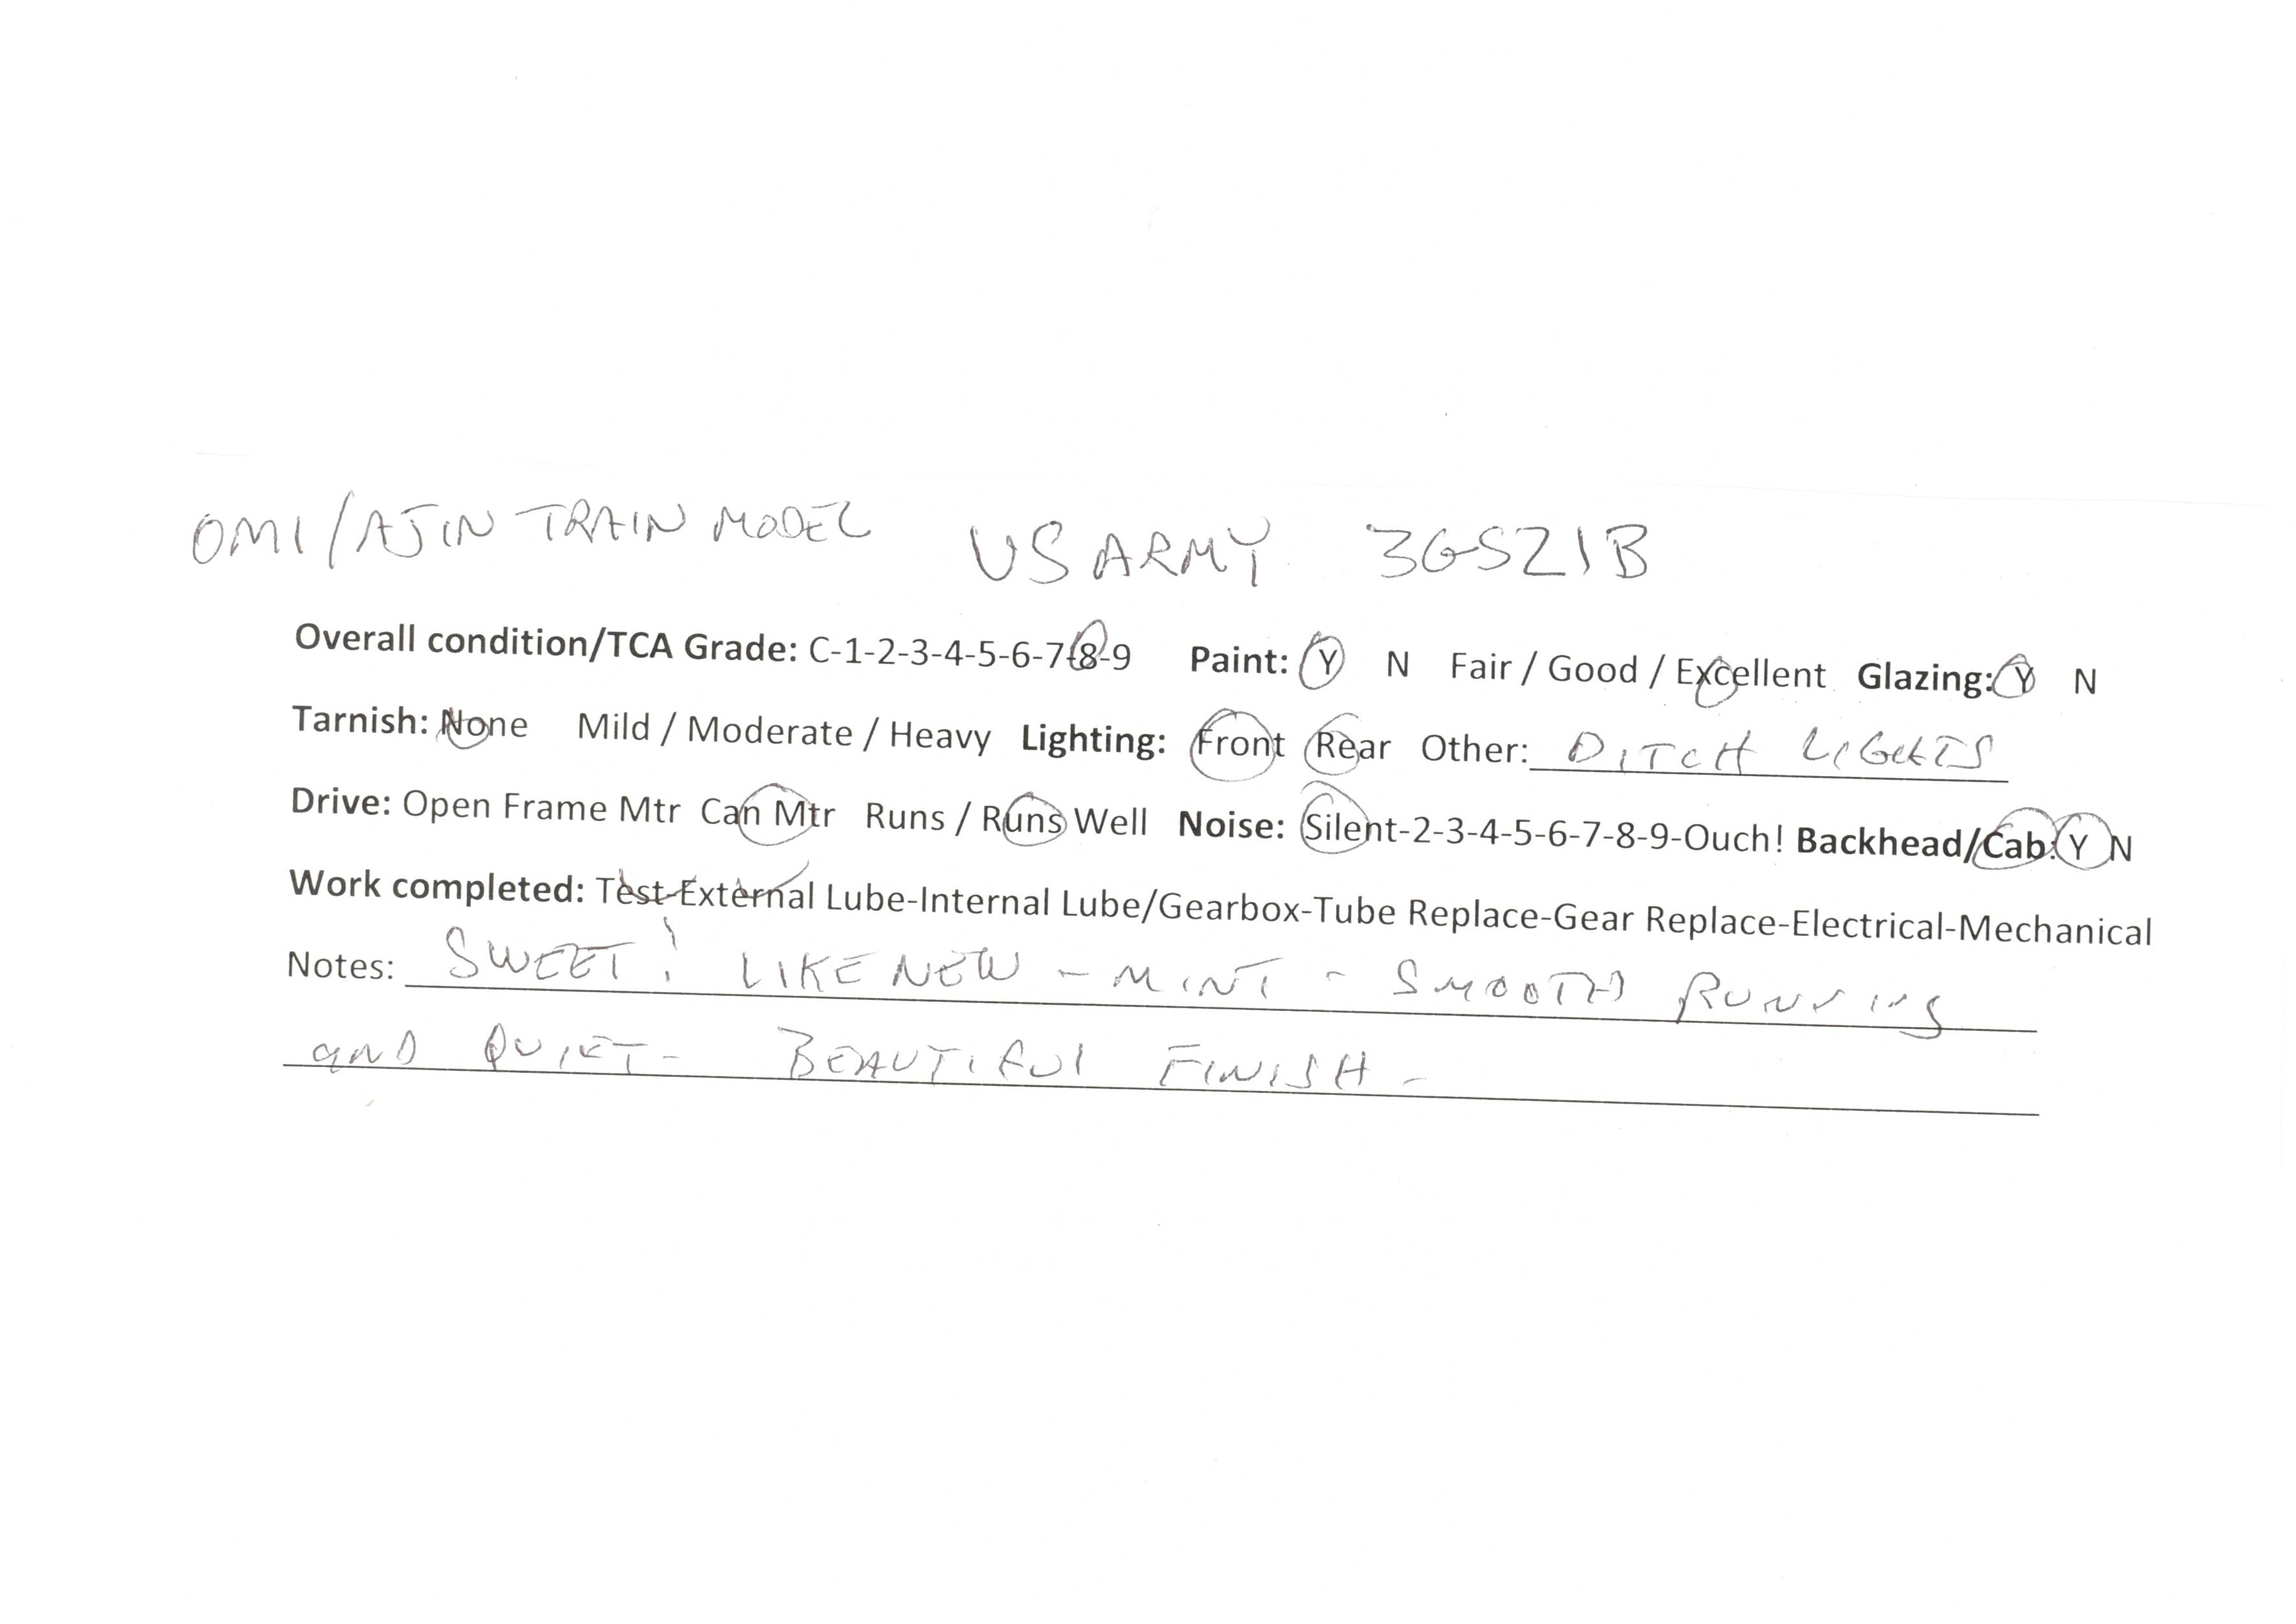 OMI/AJIN TRAIN MODEL US ARMY 3GS21B
Overall condition/TCA Grade: C-1-2-3-4-5-6-7-8-9 Paint: Y N Fair / Good / Excellent Glazing: Y N
Tarnish: None Mild / Moderate / Heavy Lighting: Front Rear Other: DITCH LIGHTS
Drive: Open Frame Mtr Can Mtr Runs / Runs Well Noise: Silent-2-3-4-5-6-7-8-9-Ouch! Backhead/Cab: Y N
Work completed: Test-External Lube-Internal Lube/Gearbox-Tube Replace-Gear Replace-Electrical-Mechanical
Notes: SWEET! LIKE NEW - MINT - SMOOTH RUNNING
AND QUIET - BEAUTIFUL FINISH -